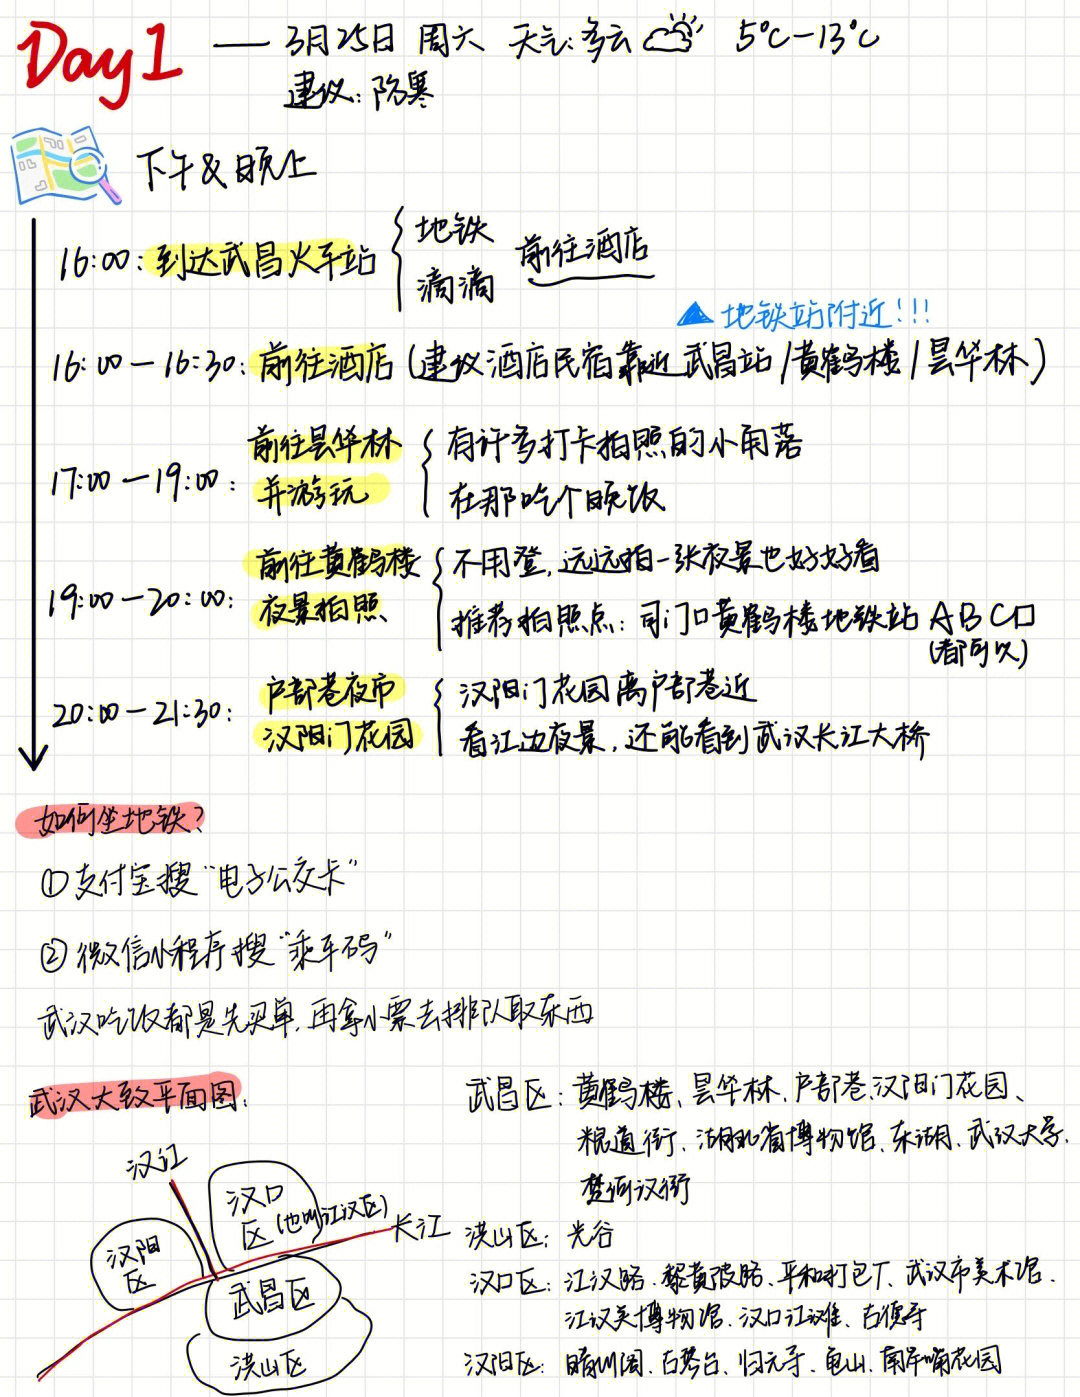 Day1 —— 3月25日 周六 天气:多云 5℃-13℃
建议:防寒
下午&晚上
16:00:到达武昌火车站 地铁
滴滴
前往酒店
地铁站附近!!!
16:00-16:30:前往酒店(建议酒店民宿靠近武昌站/黄鹤楼/昙华林)
17:00-19:00:
前往昙华林
并游玩
有许多打卡拍照的小角落
在那吃个晚饭
19:00-20:00:
前往黄鹤楼
夜景拍照
不用登,远远拍一张夜景也好好看
推荐拍照点:司门口黄鹤楼地铁站ABCD
(都可以)
20:00-21:30:
户部巷夜市
汉阳门花园
汉阳门花园离户部巷近
看江边夜景,还能看到武汉长江大桥
如何坐地铁?
①支付宝搜“电子公交卡”
②微信小程序搜“乘车码”
武汉吃饭都是先买单,再拿小票去排队取东西
武汉大致平面图:
汉江
汉口
区(也叫江汉区)
长江
汉阳
区
武昌区
洪山区
武昌区:黄鹤楼、昙华林、户部巷、汉阳门花园、
粮道街、湖北省博物馆、东湖、武汉大学、
楚河汉街
洪山区:光谷
汉口区:江汉路、黎黄陂路、平和打包厂、武汉市美术馆、
江汉关博物馆、汉口江滩、古德寺
汉阳区:晴川阁、古琴台、归元寺、龟山、南岸嘴花园